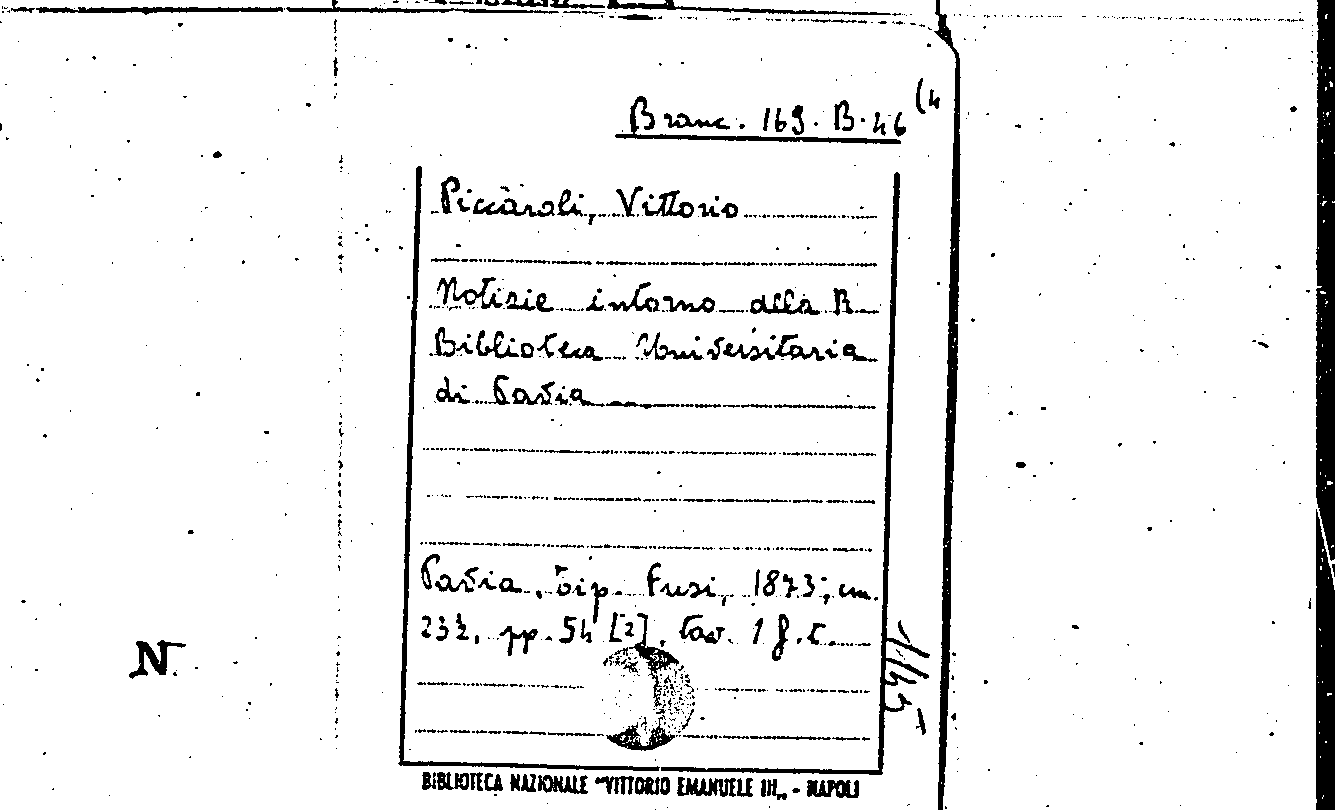 Branc. 169. B. 46 (4
Piccaroli, Vittorio
Notizie intorno alla R.
Biblioteca Universitaria
di Pavia
Pavia, Tip. Fusi, 1873; cm.
23½, pp. 54 [2], tav. 1 f.t.
N
BIBLIOTECA NAZIONALE "VITTORIO EMANUELE III„ - NAPOLI